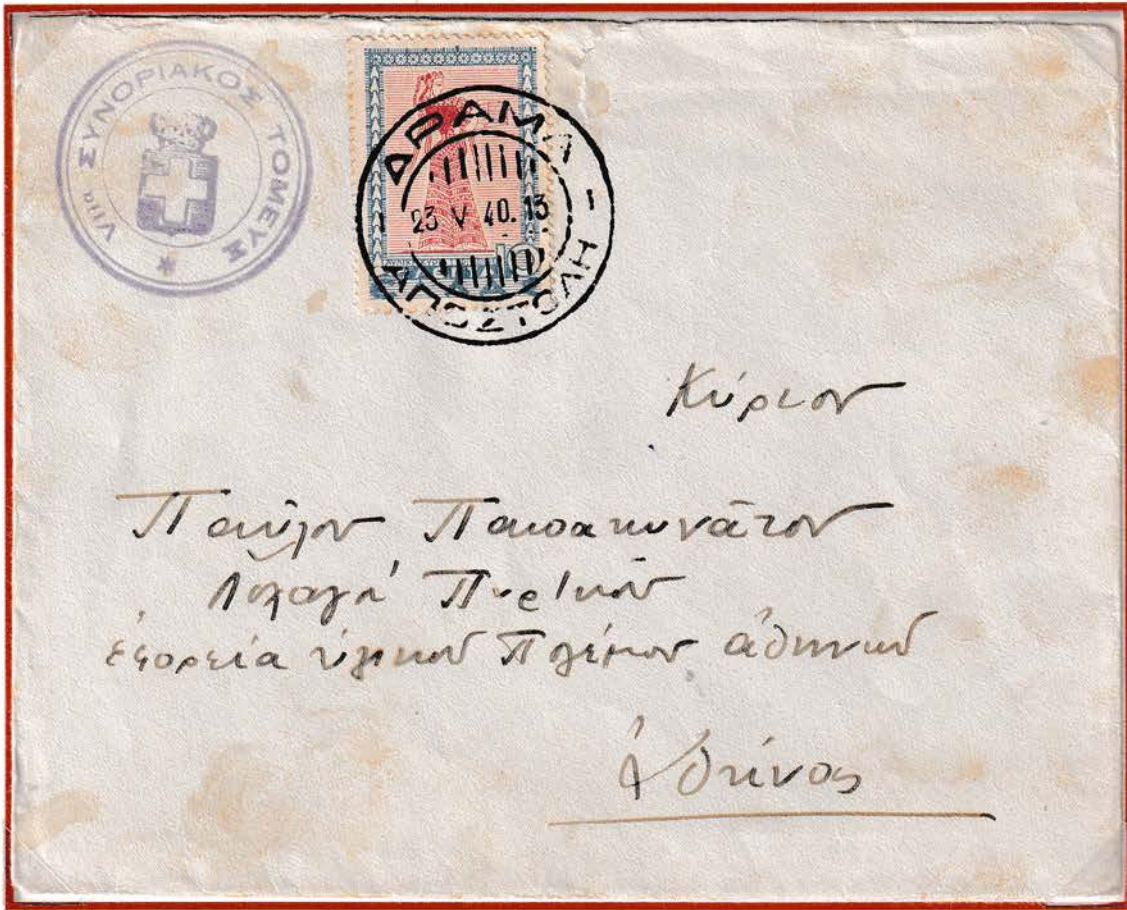 VIIα ΣΥΝΟΡΙΑΚΟΣ ΤΟΜΕΥΣ
ΔΡΑΜΑ
23 V 40. 13
ΑΠΟΣΤΟΛΗ
10
Κύριον
Παῦλον
Λοχαγὸν Πυρ/κοῦ
ἐφορεία ὑλικοῦ Πολέμου ἀθηνῶν
Ἀθήνας